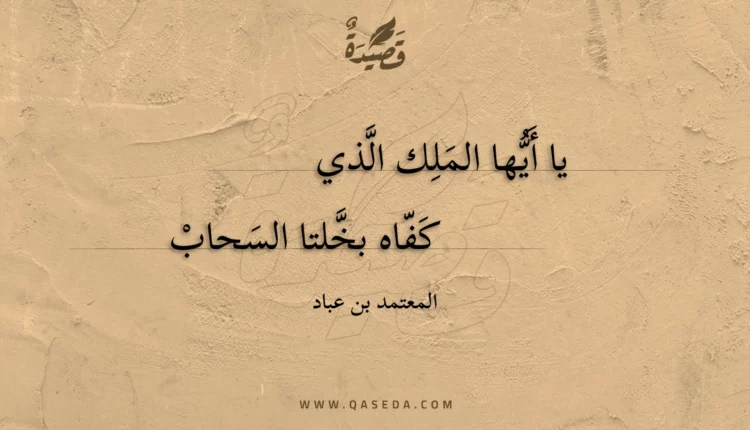 قَصِيدَةٌ
يا أَيُّها المَلِك الَّذي
كَفّاه بخَّلتا السَحابْ
المعتمد بن عباد
WWW.QASEDA.COM